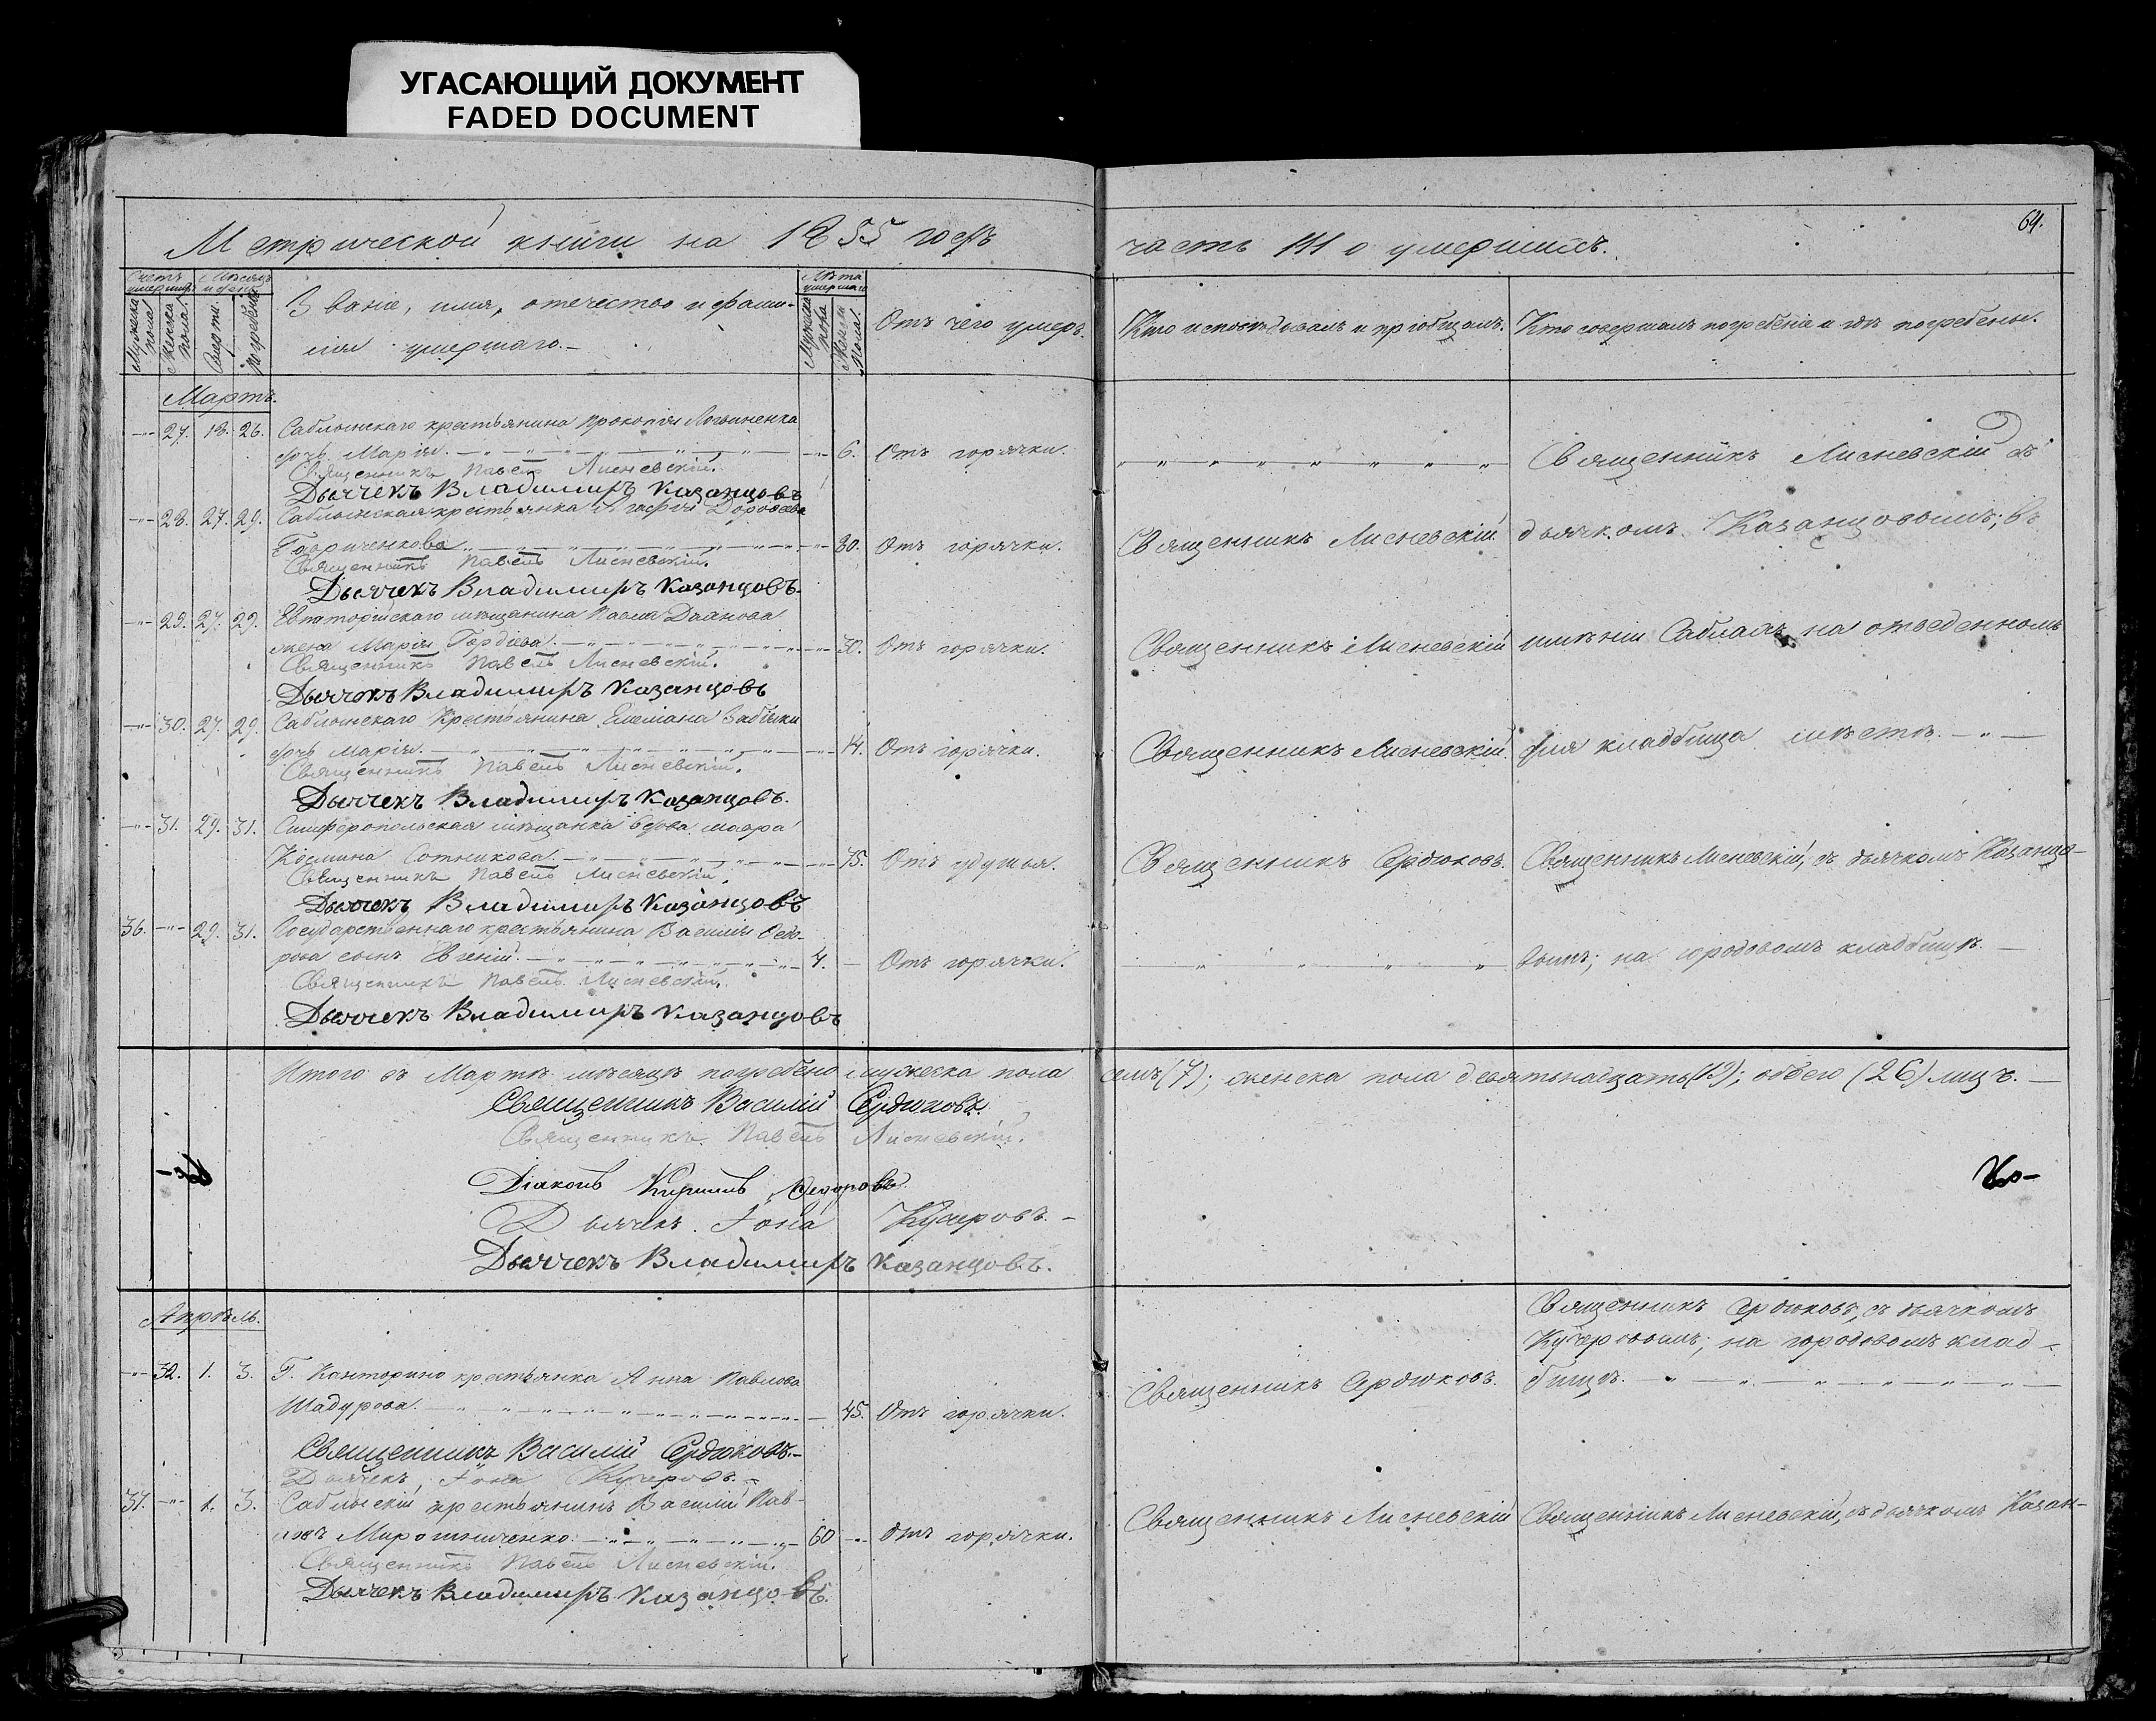 УГАСАЮЩИЙ ДОКУМЕНТ
FADED DOCUMENT
64.
Метрической книги на 1855 годъ
часть III о умершихъ.
Счетъ умершихъ
Мужеска пола.
Женска пола.
Мѣсяцъ и день
Смерти.
Погребенія
Званіе, имя, отечество и фами-
лія умершаго.
Лѣта умершаго
Мужеска пола
Женска пола.
Отъ чего умеръ.
Кто исповѣдовалъ и пріобщалъ.
Кто совершалъ погребеніе и гдѣ погребены.
Мартъ.
27. 18. 26. Саблынскаго крестьянина Прокопія Логвиненка
дочь Марія. 6. Отъ горячки. Священникъ Лисневскій съ
Священникъ Павелъ Лисневскій.
Дьячекъ Владимиръ Казанцовъ
28. 27. 29. Саблынская крестьянка Агафія Дорофеева
30. Отъ горячки. Священникъ Лисневскій дьячкомъ Казанцовымъ; въ
Священникъ Павелъ Лисневскій.
Дьячекъ Владимиръ Казанцовъ.
29. 27. 29. Евпаторійскаго мѣщанина Павла
жена Марія Гордіева. 30. Отъ горячки. Священникъ Лисневскій имѣніи Саблахъ на отведенномъ
Священникъ Павелъ Лисневскій.
Дьячекъ Владимиръ Казанцовъ
30. 27. 29. Саблынскаго Крестьянина Емеліана
дочь Марія. 14. Отъ горячки. Священникъ Лисневскій для кладбища мѣстѣ.
Священникъ Павелъ Лисневскій.
Дьячекъ Владимиръ Казанцовъ.
31. 29. 31. Симферопольская мѣщанка вдова Мавра
Космина Сотникова. 75. Отъ удушья. Священникъ Сердюковъ. Священникъ Лисневскій, съ дьячкомъ Казанцо-
Священникъ Павелъ Лисневскій.
Дьячекъ Владимиръ Казанцовъ
36. 29. 31. Государственнаго крестьянина Василія Ѳедо-
рова сынъ Евгеній. 4. Отъ горячки. вымъ; на городовомъ кладбищѣ.
Священникъ Павелъ Лисневскій.
Дьячекъ Владимиръ Казанцовъ
Итого въ Мартѣ мѣсяцѣ погребено мужеска пола семь (7); женска пола девятьнадцать (19); обоего (26) лицъ.
Священникъ Василій Сердюковъ.
Священникъ Павелъ Лисневскій.
Діаконъ Кириллъ Ѳедоровъ.
Дьячекъ Іона Кучеровъ.
Дьячекъ Владимиръ Казанцовъ.
Апрѣль.
Священникъ Сердюковъ, съ дьячкомъ
Кучеровымъ; на городовомъ клад-
32. 1. 3. Г. Канторино крестьянка Анна Павлова
Священникъ Сердюковъ. бищѣ.
Шадурова. 45. Отъ горячки.
Священникъ Василій Сердюковъ.
Дьячекъ, Іона Кучеровъ.
37. 1. 3. Саблыскій крестьянинъ Василій Пав-
Священникъ Лисневскій Священникъ Лисневскій, съ дьячкомъ Казан-
ловъ Мирошниченко. 60 Отъ горячки.
Священникъ Павелъ Лисневскій.
Дьячекъ Владимиръ Казанцовъ.